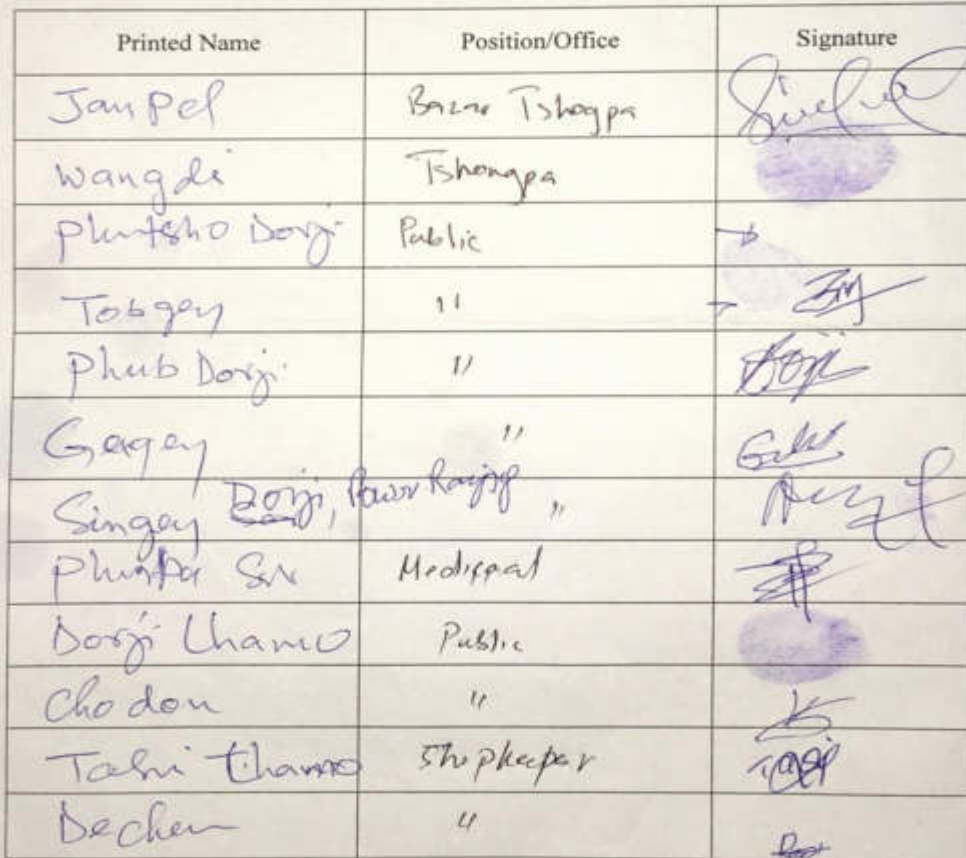 Printed Name Position/Office Signature
Janpel Bazar Tshogpa
Wangdi Tshongpa
Phuntsho Dorji Public
Tobgey "
Phub Dorji " Dorji
Gagey "
Singey Dorji, "
Medical
Dorji Lhamo Public
Chodon "
Tashi Lhamo Shopkeepar
Dechen "